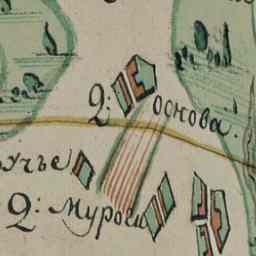 Д: основа.
учье
Д: Муроси